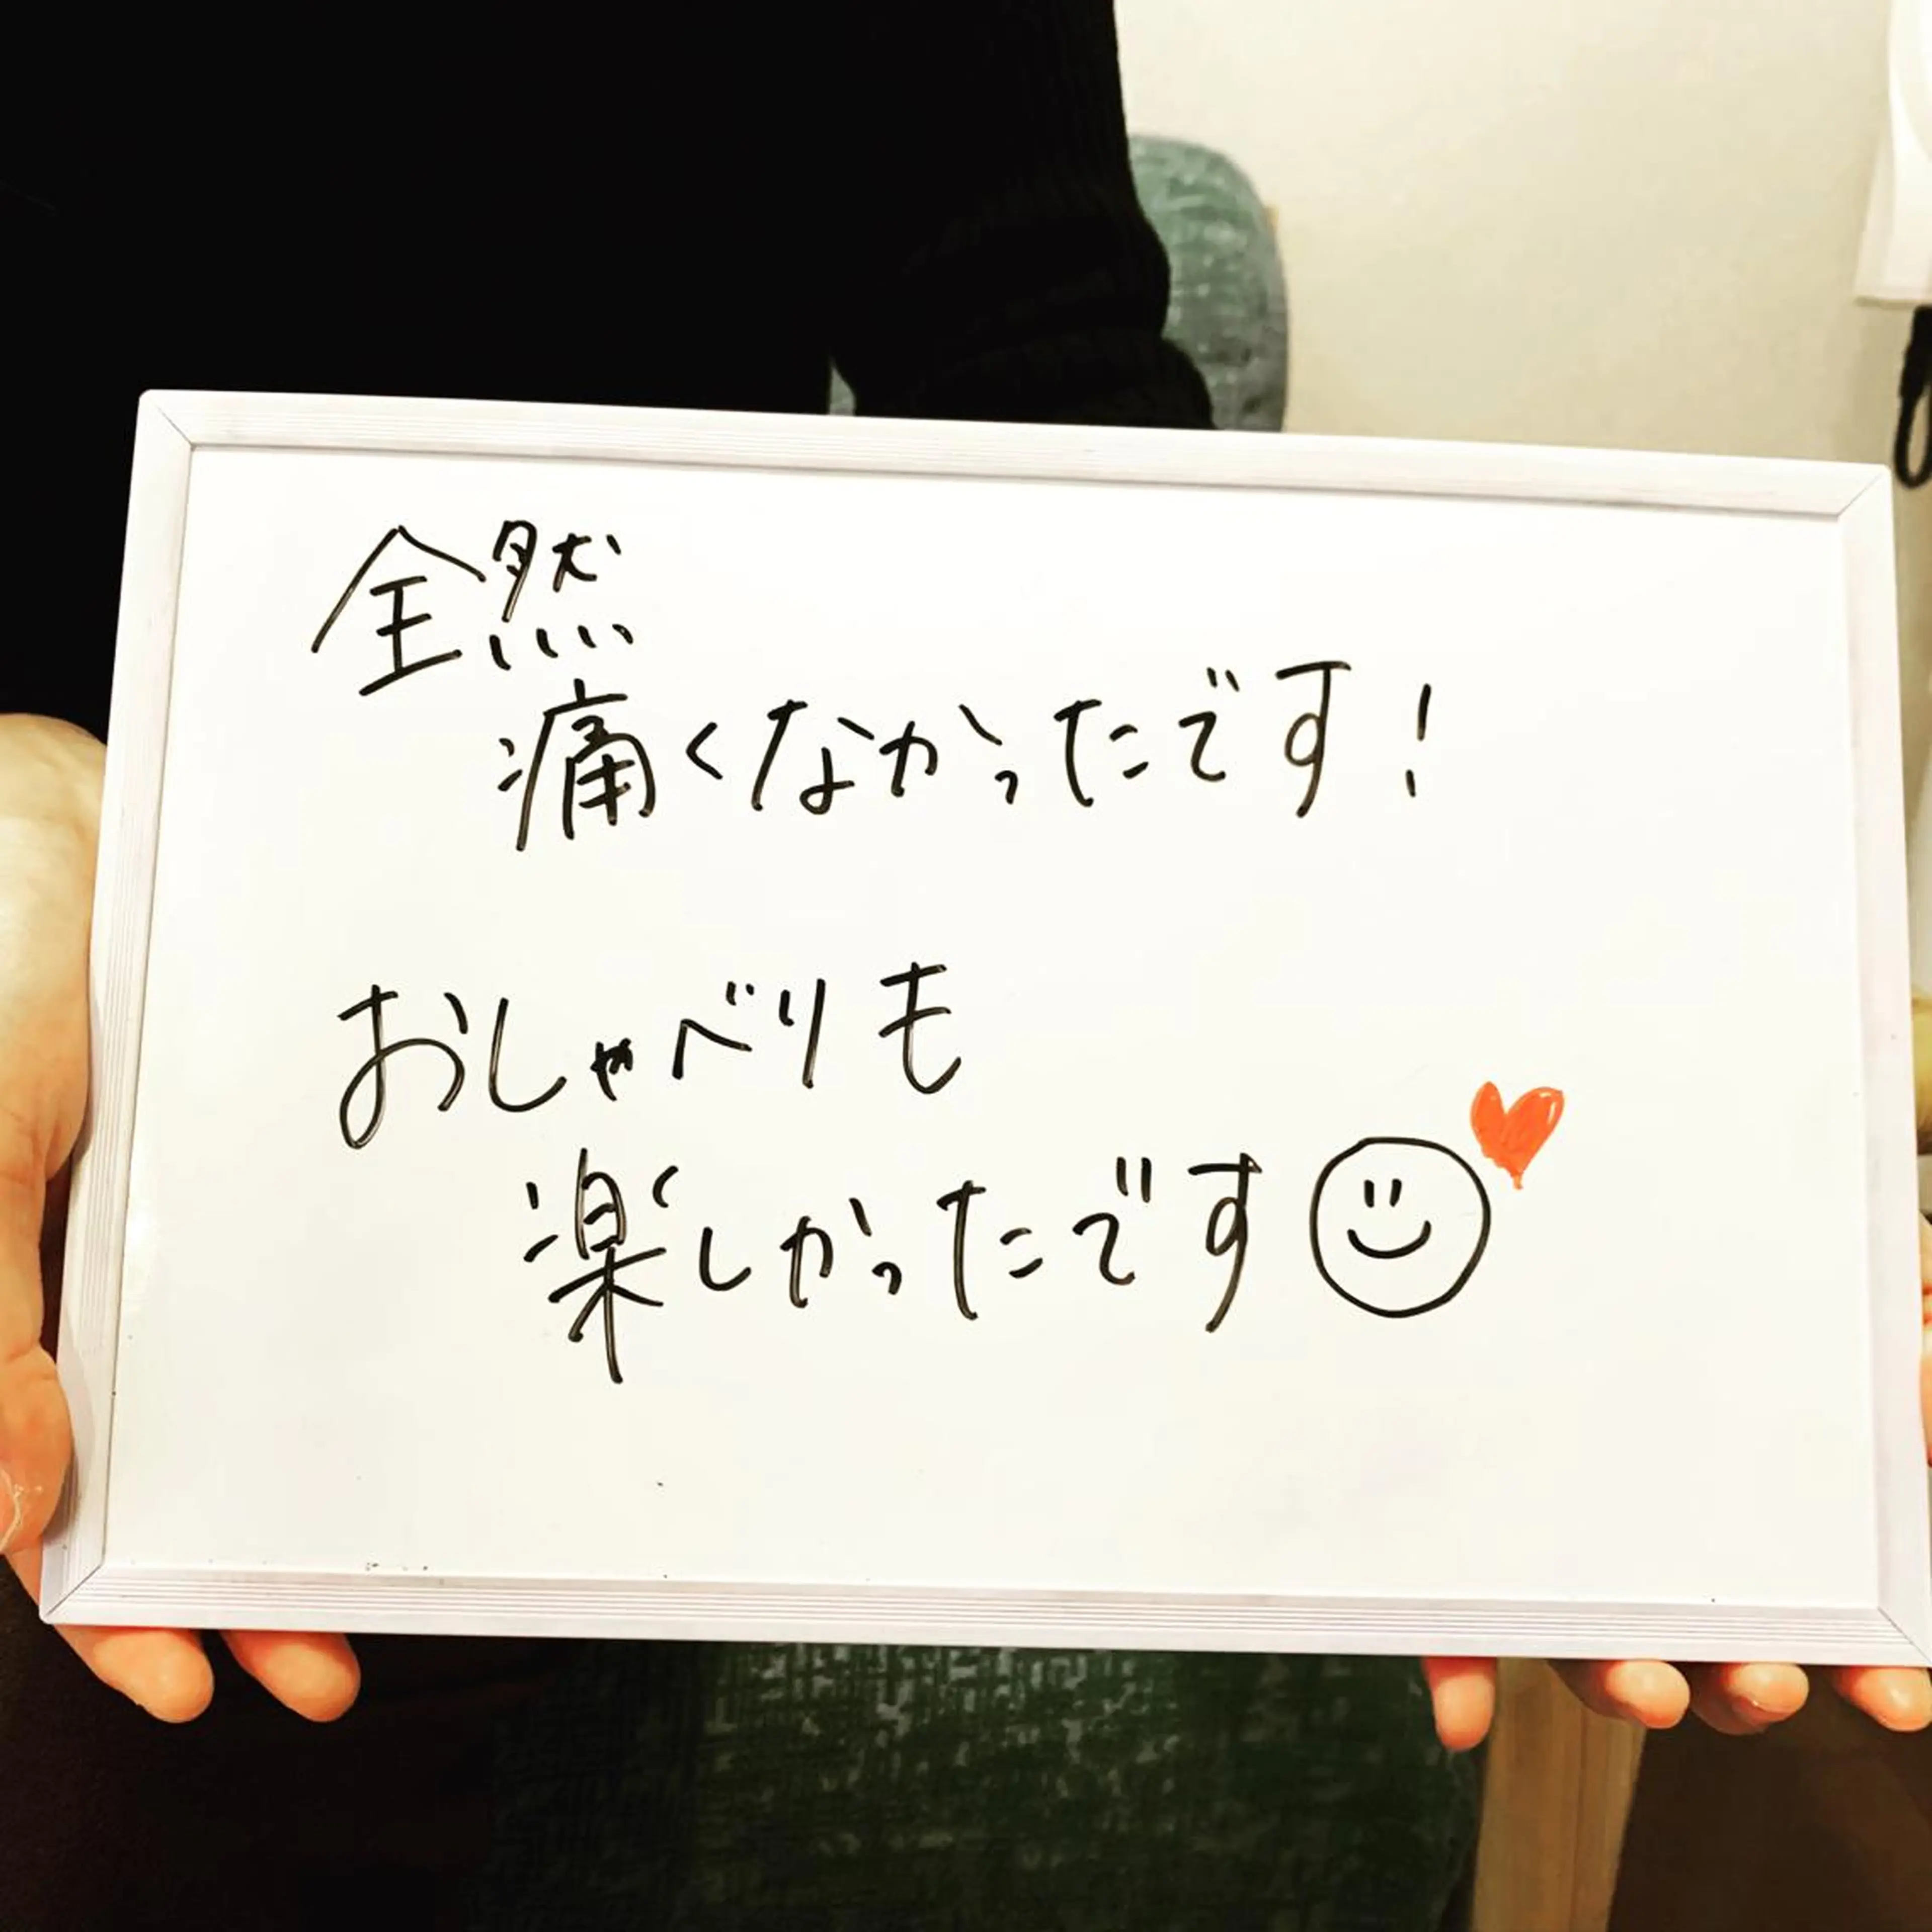 全然
痛くなかったです!
おしゃべりも
楽しかったです